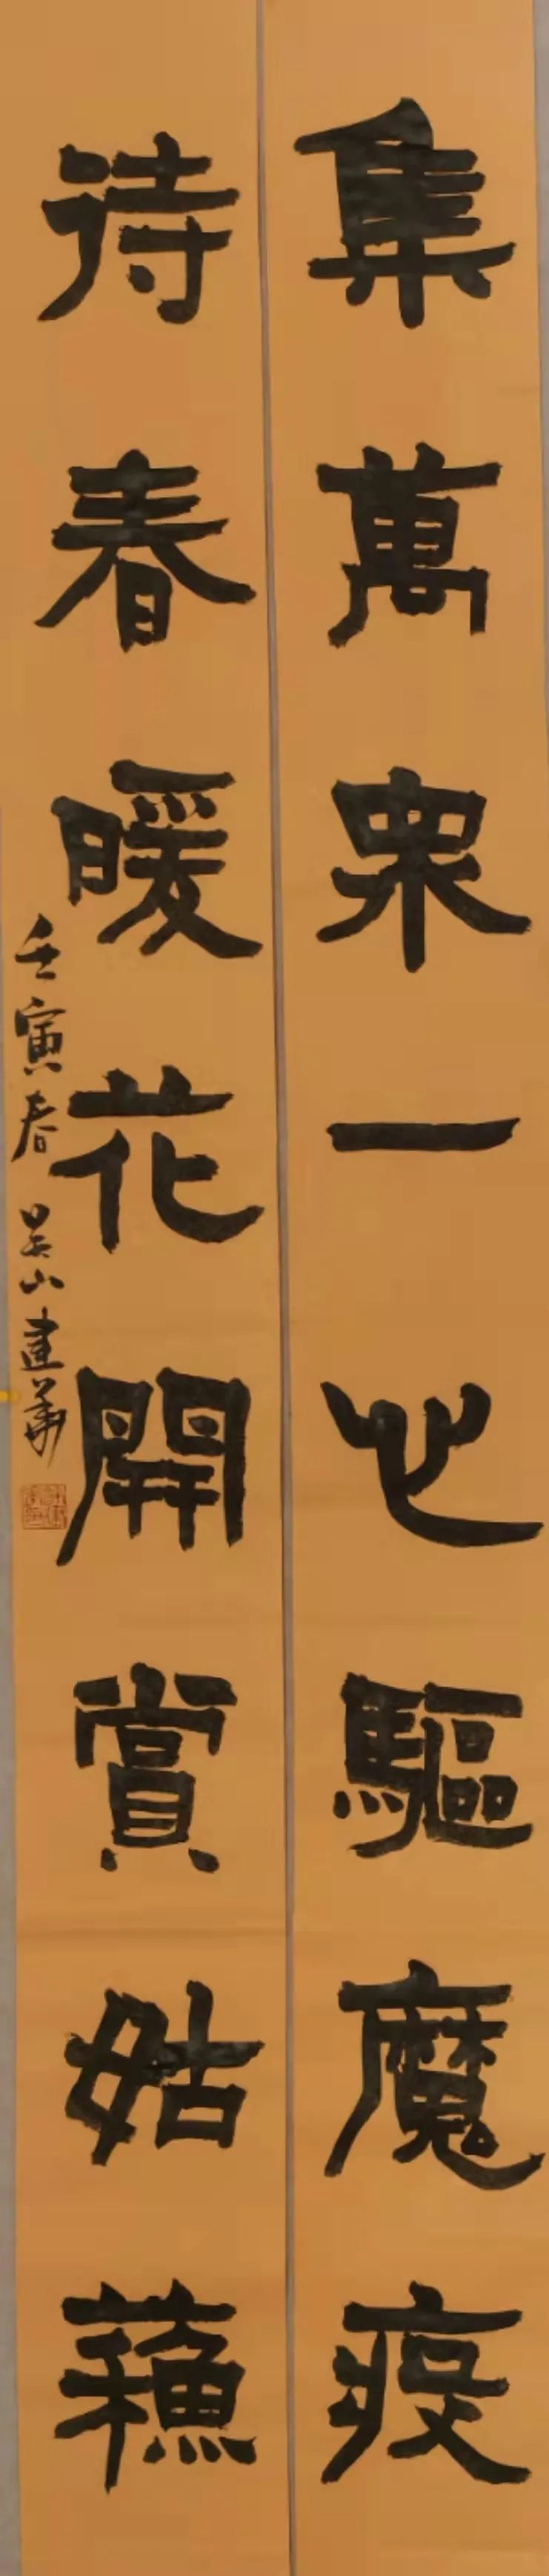 集萬衆一心驅魔疫
待春暖花開賞姑蘓
壬寅春吴山建华